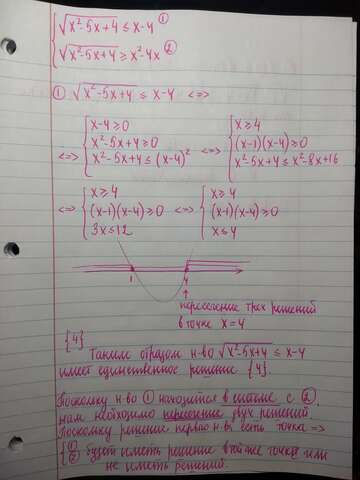 { √(x²-5x+4) ≤ x-4 ①
{ √(x²-5x+4) ≥ x²-4x ②
① √(x²-5x+4) ≤ x-4 <=>
<=> { x-4 ≥ 0 <=> { x ≥ 4
{ x²-5x+4 ≥ 0 { (x-1)(x-4) ≥ 0
{ x²-5x+4 ≤ (x-4)² { x²-5x+4 ≤ x²-8x+16
<=> { x ≥ 4 <=> { x ≥ 4
{ (x-1)(x-4) ≥ 0 { (x-1)(x-4) ≥ 0
{ 3x ≤ 12 { x ≤ 4
1 4
пересечение трех решений
в точке x = 4
{4}
Таким образом н-во √(x²-5x+4) ≤ x-4
имеет единственное решение {4}.
Поскольку н-во ① находится в системе с ②,
нам необходимо пересечение двух решений.
Поскольку решение первого н-ва есть точка =>
{ ① ② будет иметь решение в той же точке или
не иметь решений.